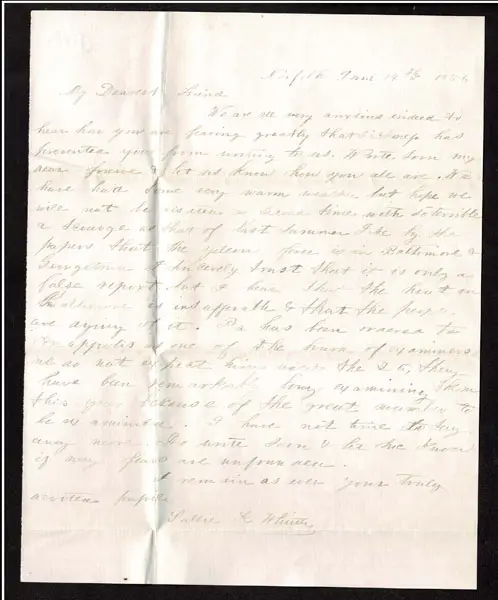 Norfolk June 19th 1856
My Dearest Friend
We are all very anxious indeed to
hear how you are fearing greatly that sickness has
prevented you from writing to us. Write soon my
dear friend & let us know how you all are. We
have had some very warm weather but hope we
will not be visited a second time with so terrible
a scourge as that of last summer I see by the
papers that the yellow fever is in Baltimore &
Georgetown I sincerely trust that it is only a
false report, but I hear that the heat in
Baltimore is insufferable & that the people
are dying of it. Pa has been ordered to
as one of the board of examiners
we do not expect him until the 25, they
have been remarkably long examining them
this year because of the great number to
be examined. I have not time to say
any more. Do write soon & let me know
if my fears are unfounded.
I remain as ever yours truly
devoted pupil
Sallie